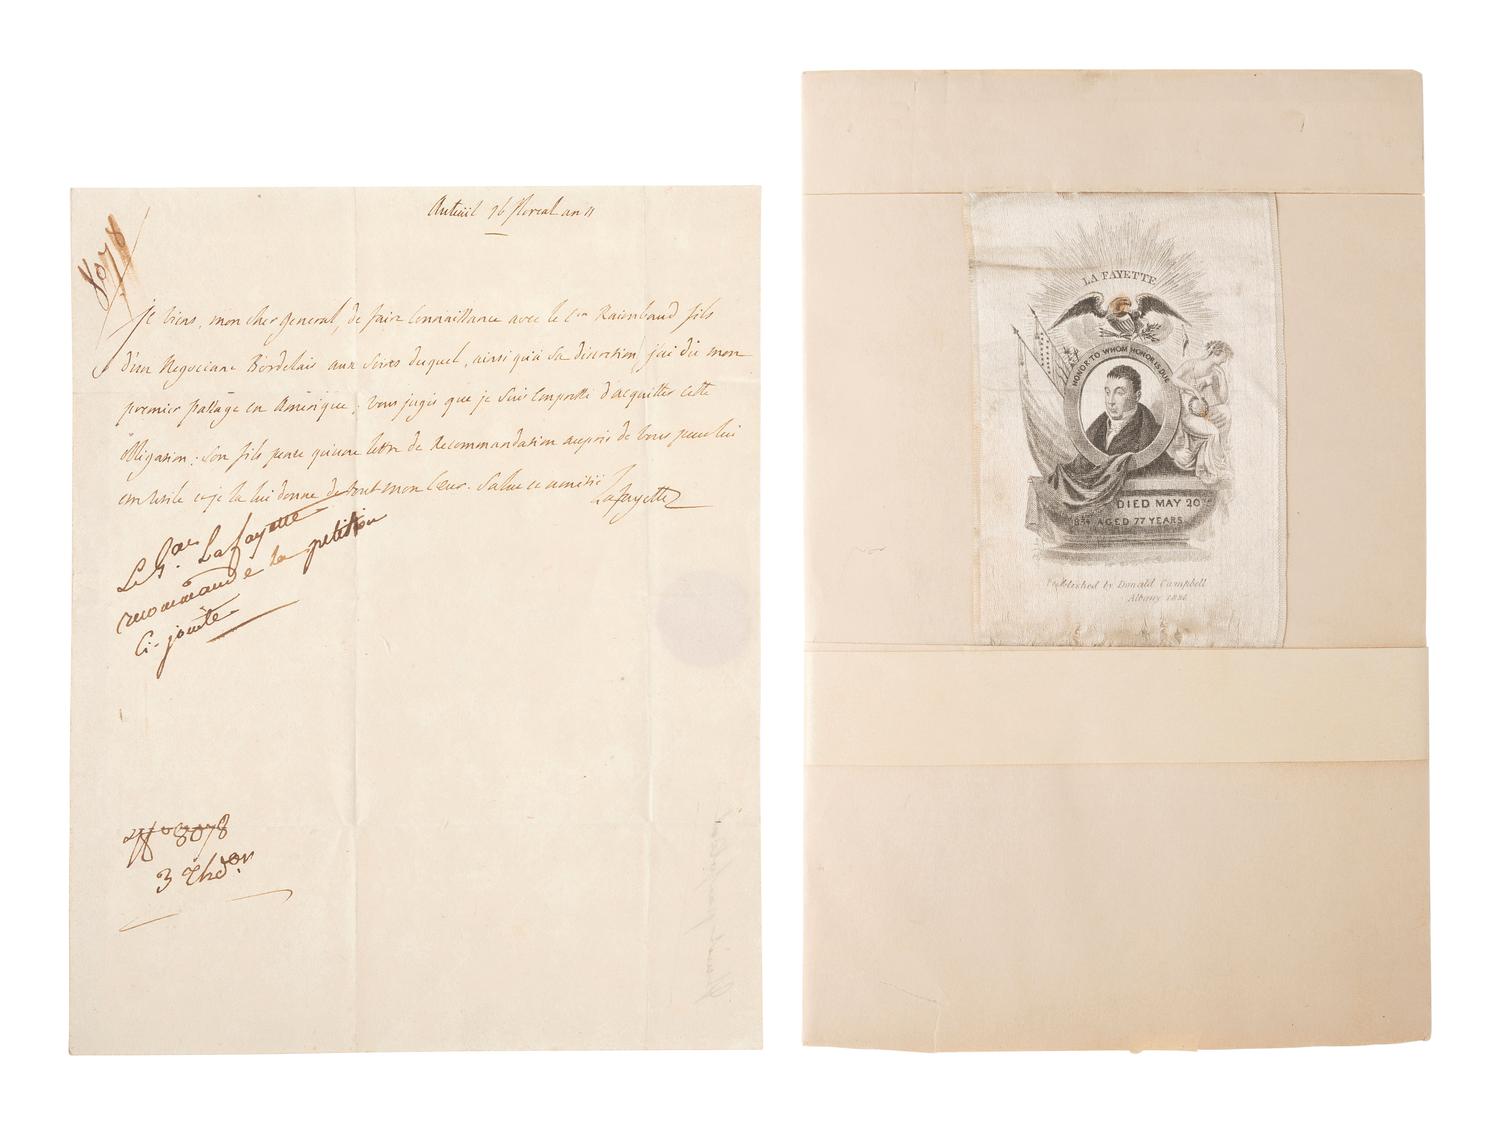 Auteuil 16 floreal an 11
8078
Je viens, mon cher general, de faire connaissance avec le Cen Raimbaud fils
d'un Negociant Bordelais aux soins duquel, ainsi qu'a sa discretion j'ai du mon
premier passage en Amérique; vous jugés que je suis empressé d'acquitter cette
obligation. Son fils pense qu'une lettre de recommandation auprès de vous peut lui
etre utile et je la lui donne de tout mon coeur. Salut et amitié
Lafayette
Le Gal. Lafayette
recommande la petition
Ci-jointe
8078
3
LA FAYETTE
HONOR TO WHOM HONOR IS DUE
DIED MAY 20th
1834 AGED 77 YEARS
Published by Donald Campbell
Albany 1834